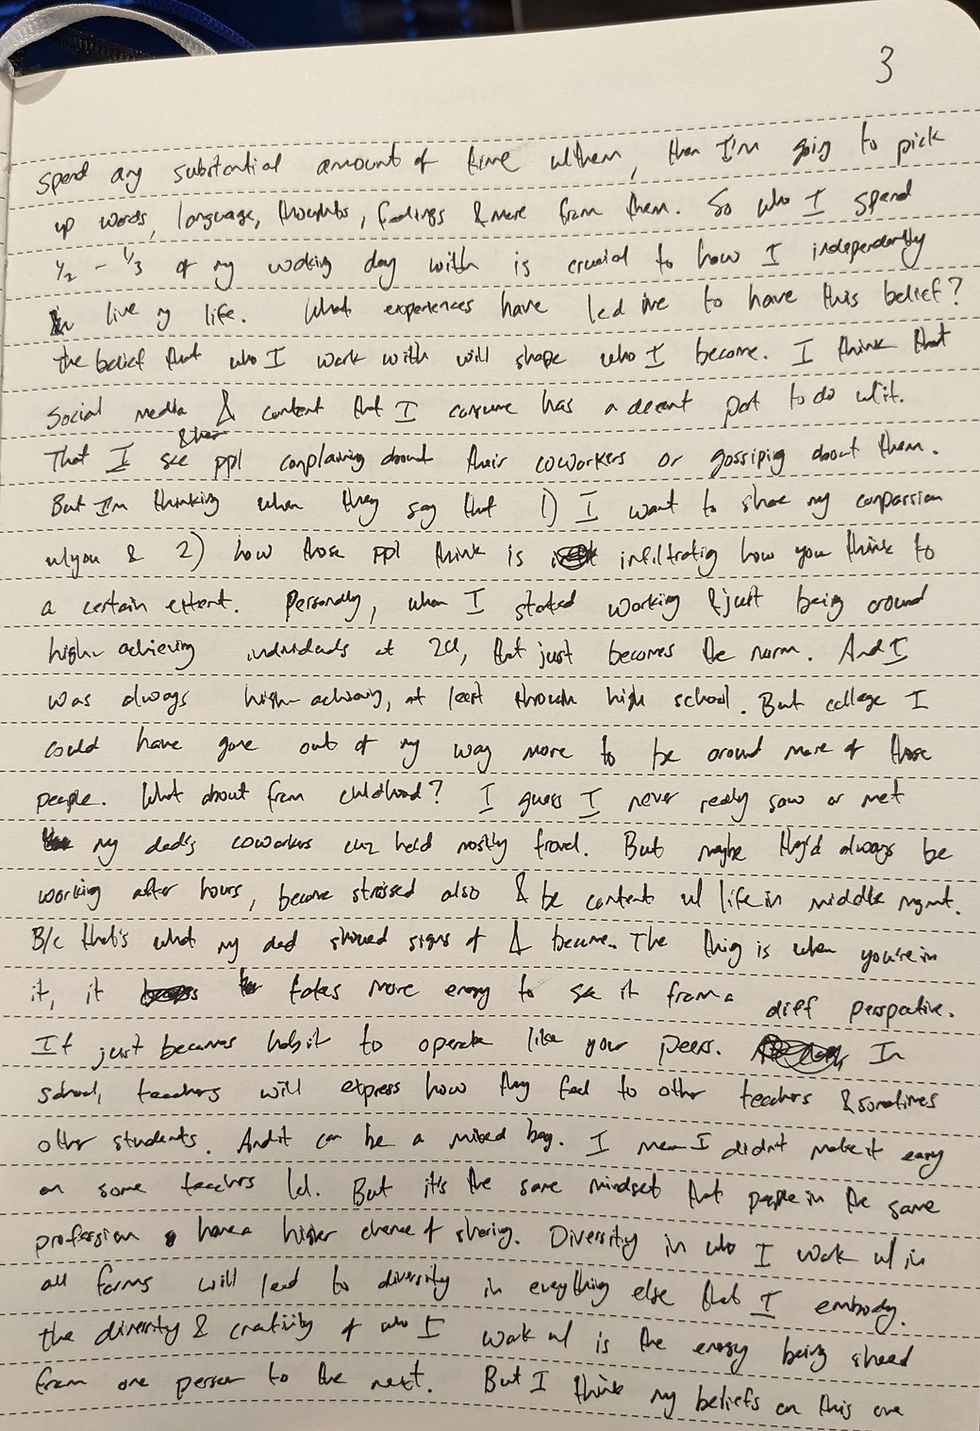 3
spend any substantial amount of time w/them, then I'm going to pick
up words, language, thoughts, feelings & more from them. So who I spend
1/2 - 1/3 of my working day with is crucial to how I independently
live my life. What experiences have led me to have this belief?
the belief that who I work with will shape who I become. I think that
social media & content that I consume has a decent part to do w/it.
That I see ppl complaining about their coworkers or gossiping about them.
But I'm thinking when they say that 1) I want to share my compassion
w/you & 2) how those ppl think is infiltrating how you think to
a certain extent. Personally, when I started working & just being around
high-achieving individuals at 2U, that just becomes the norm. And I
was always high-achieving, at least through high school. But college I
could have gone out of my way more to be around more of those
people. What about from childhood? I guess I never really saw or met
my dad's coworkers cuz he'd mostly travel. But maybe they'd always be
working after hours, become stressed also & be content w/ life in middle mgmt.
B/c that's what my dad showed signs of & became. The thing is when you're in
it, it takes more energy to see it from a diff perspective.
It just becomes habit to operate like your peers. In
school, teachers will express how they feel to other teachers & sometimes
other students. And it can be a mixed bag. I mean I didn't make it easy
on some teachers lol. But it's the same mindset that people in the same
profession have a higher chance of sharing. Diversity in who I work w/ in
all forms will lead to diversity in everything else that I embody.
the diversity & creativity of who I work w/ is the energy being shared
from one person to the next. But I think my beliefs on this are